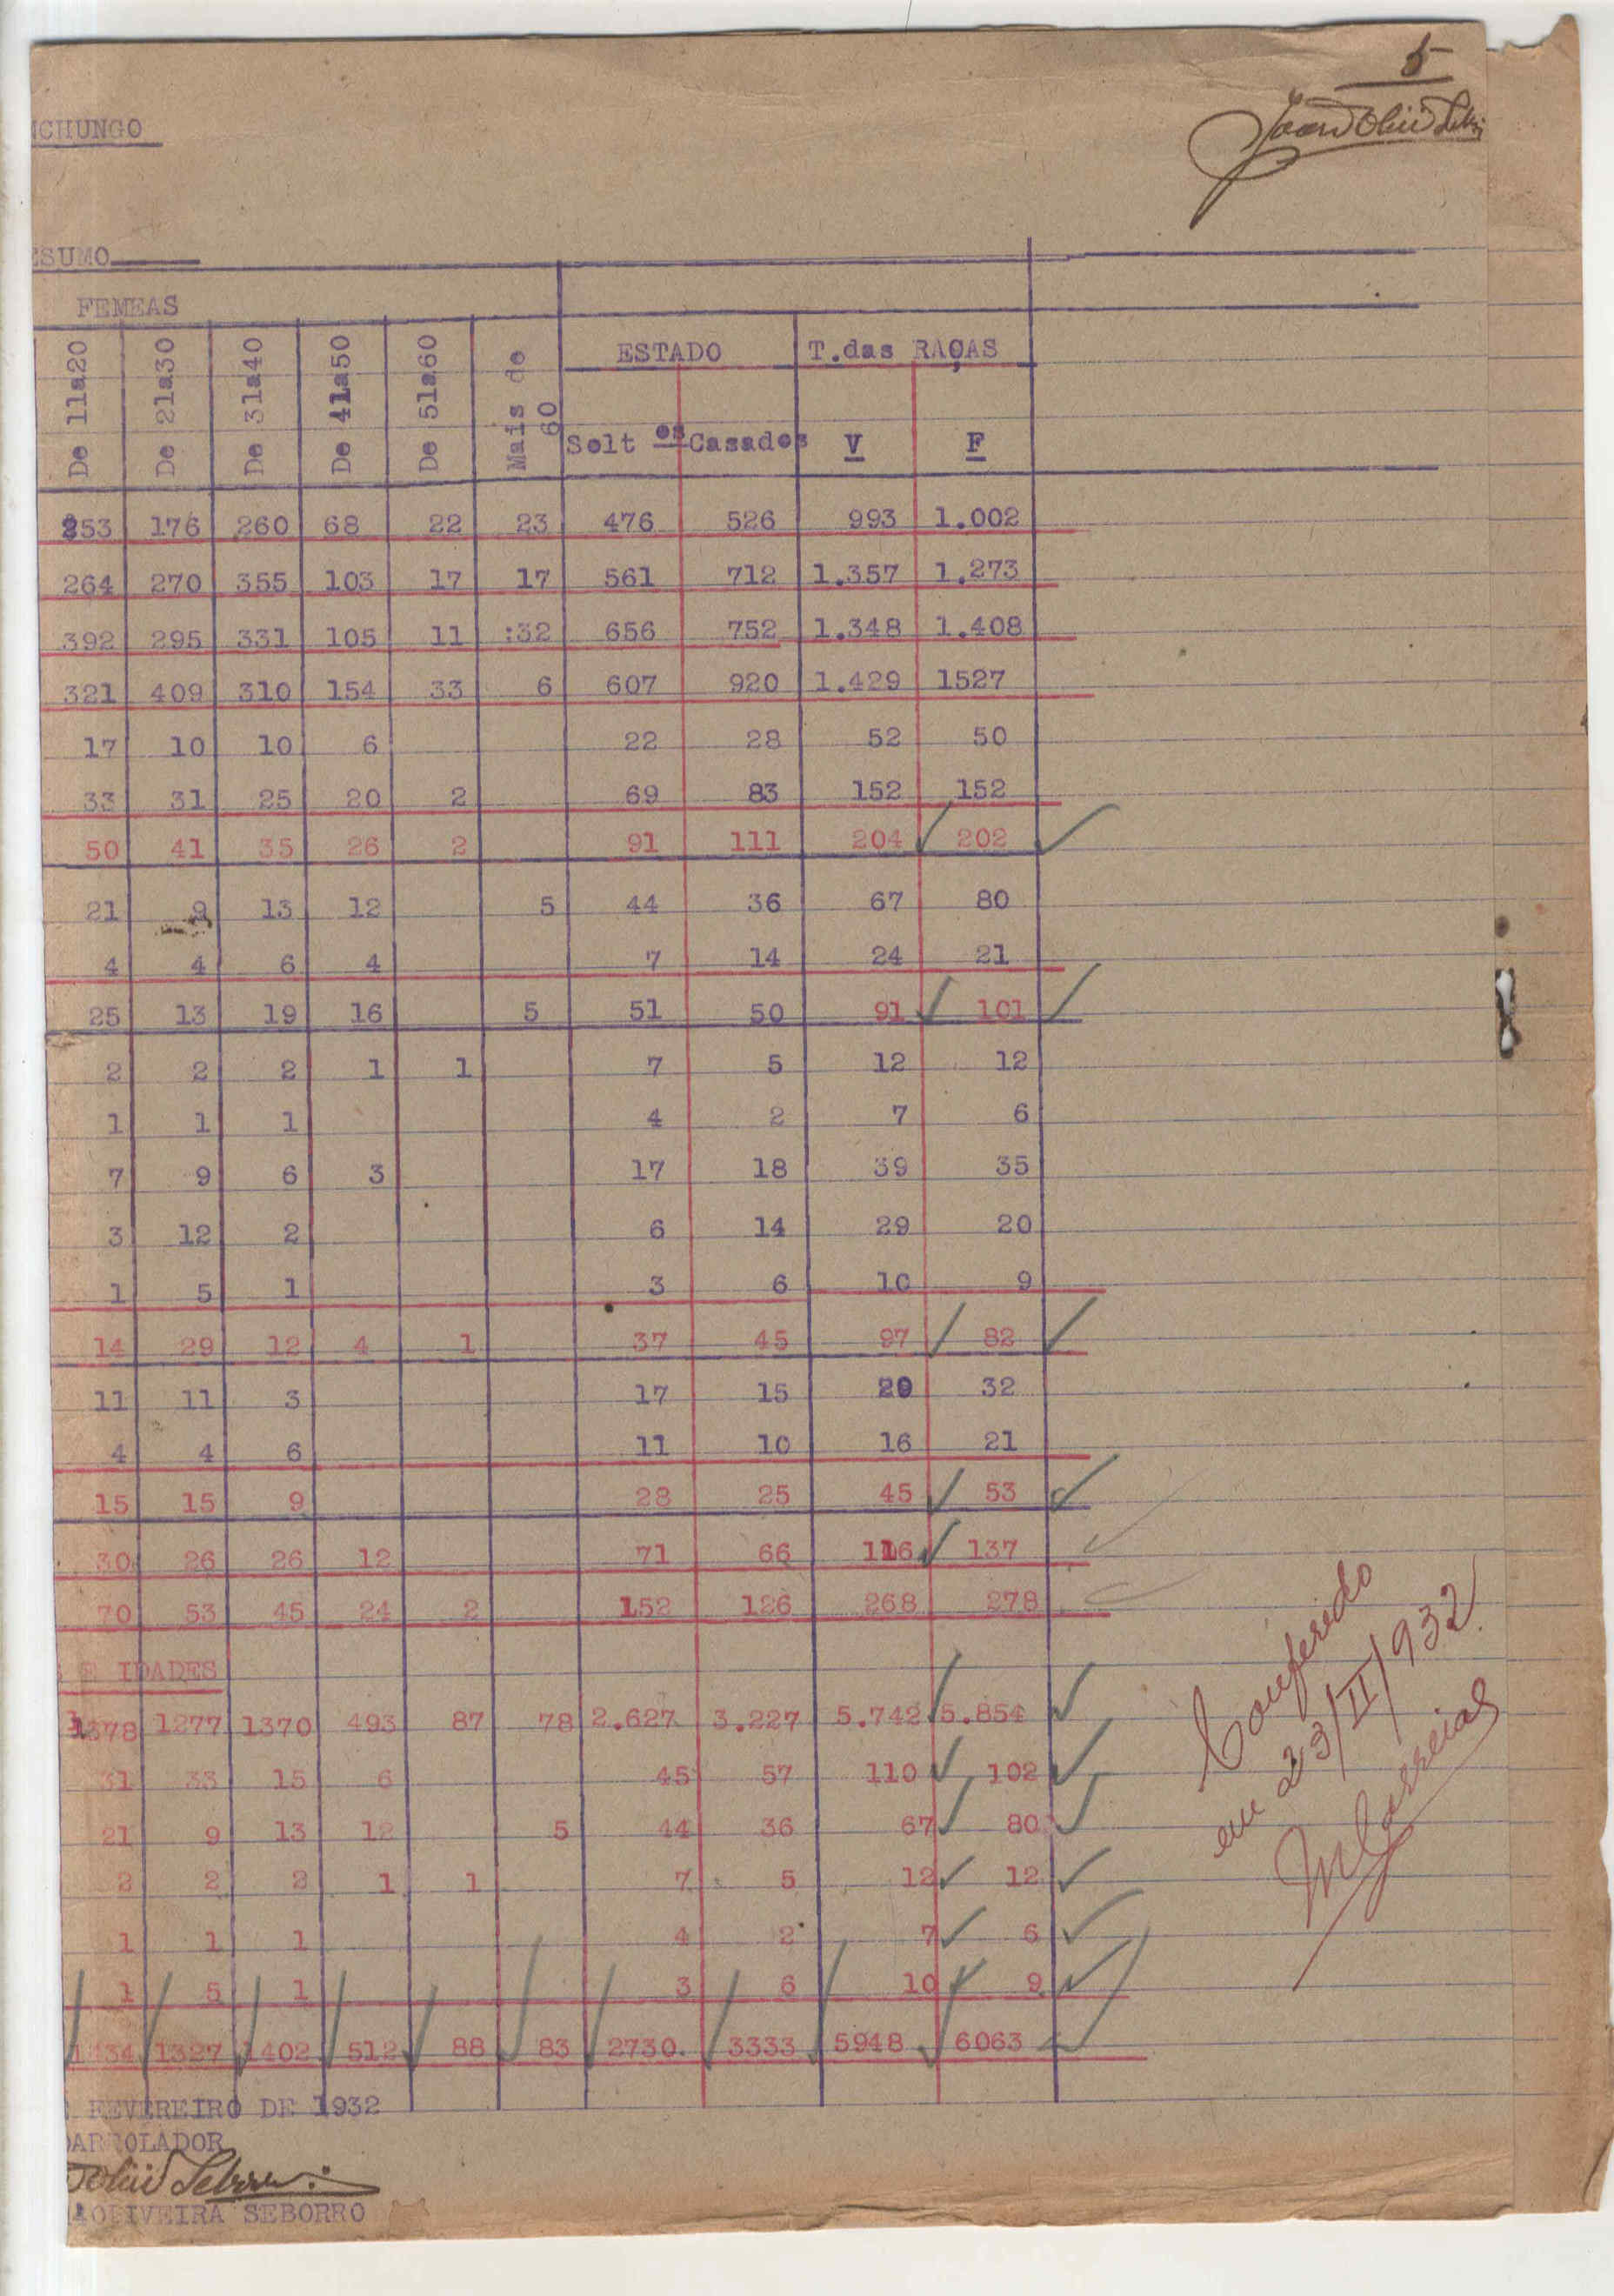 5
NCHUNGO
ESUMO
FEMEAS
De 11a20 De 21a30 De 31a40 De 41a50 De 51a60 Mais de 60 ESTADO T.das RAÇAS
Solt os Casados V F
253 176 260 68 22 23 476 526 993 1.002
264 270 355 103 17 17 561 712 1.357 1.273
392 295 331 105 11 :32 656 752 1.348 1.408
321 409 310 154 33 6 607 920 1.429 1527
17 10 10 6 22 28 52 50
33 31 25 20 2 69 83 152 152
50 41 35 26 2 91 111 204 202
21 9 13 12 5 44 36 67 80
4 4 6 4 7 14 24 21
25 13 19 16 5 51 50 91 101
2 2 2 1 1 7 5 12 12
1 1 1 4 2 7 6
7 9 6 3 17 18 39 35
3 12 2 6 14 29 20
1 5 1 3 6 10 9
14 29 12 4 1 37 45 97 82
11 11 3 17 15 29 32
4 4 6 11 10 16 21
15 15 9 28 25 45 53
30 26 26 12 71 66 116 137
70 53 45 24 2 152 126 268 278
E IDADES
1378 1277 1370 493 87 78 2.627 3.227 5.742 5.854
31 33 15 6 45 57 110 102
21 9 13 12 5 44 36 67 80
2 2 2 1 1 7 5 12 12
1 1 1 4 2 7 6
1 5 1 3 6 10 9
1434 1327 1402 512 88 83 2730. 3333 5948 6063
Conferido
em 23/II/932.
FEVEREIRO DE 1932
ARROLADOR
OLIVEIRA SEBORRO